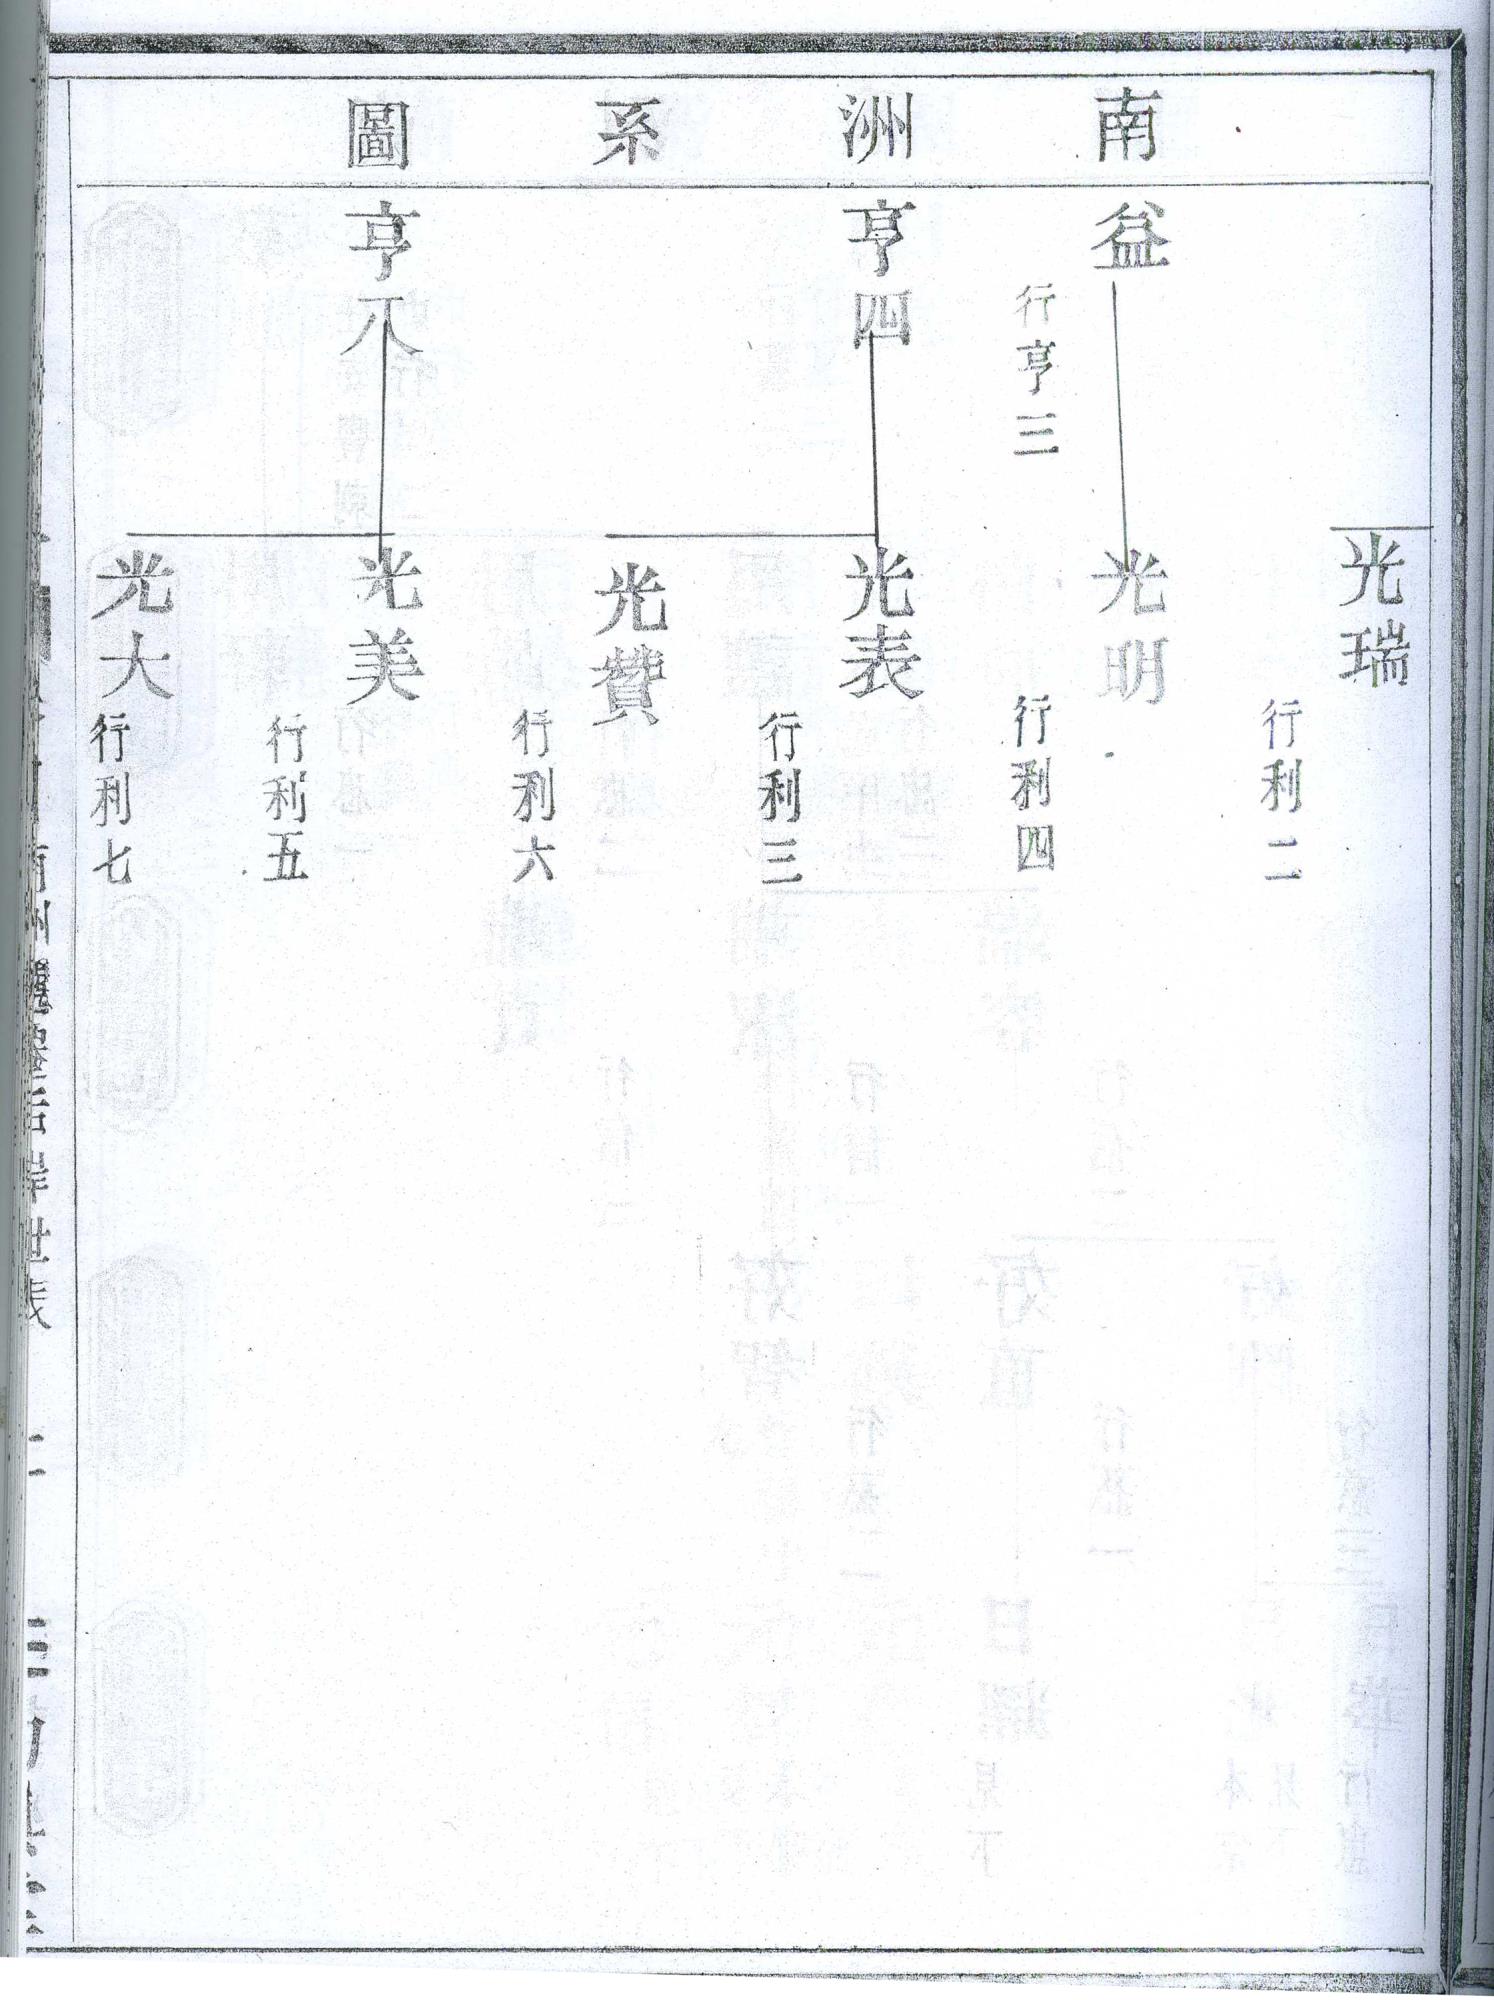 南洲系圖
光瑞
行利二
益
行亨三
光明
行利四
亨四
光表
行利三
光贊
行利六
亨八
光美
行利五
光大
行利七